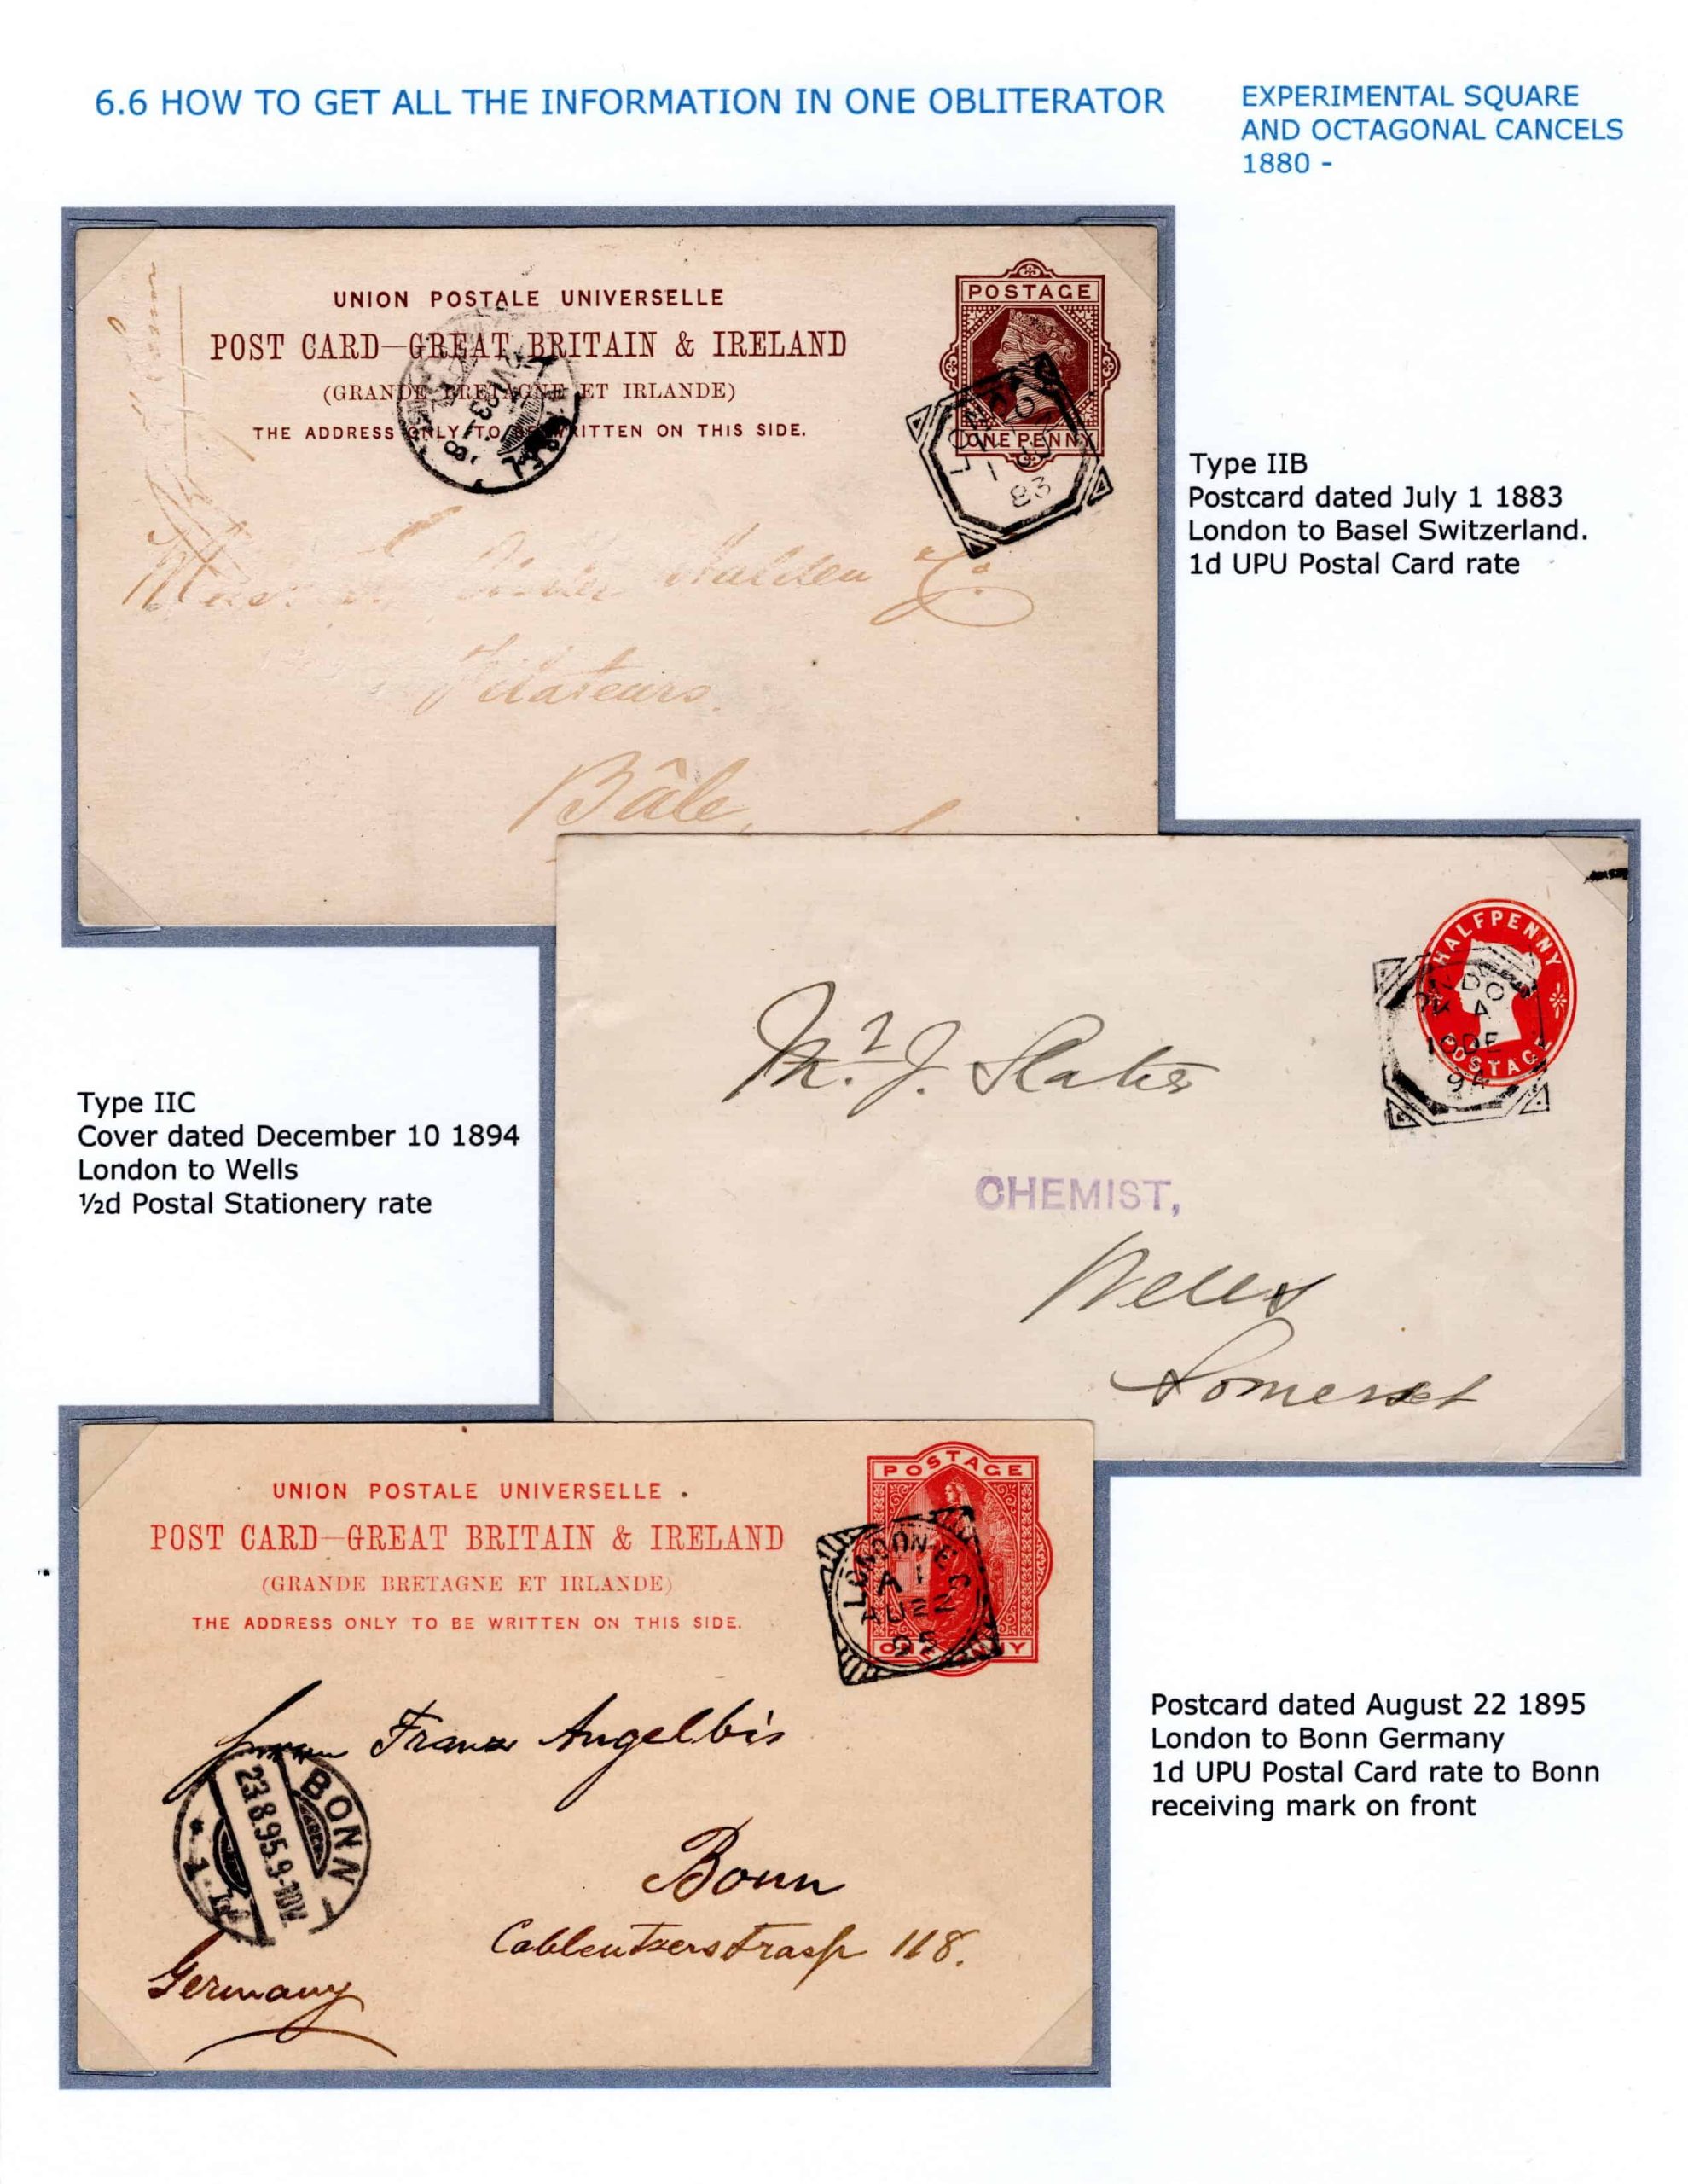 6.6 HOW TO GET ALL THE INFORMATION IN ONE OBLITERATOR
EXPERIMENTAL SQUARE
AND OCTAGONAL CANCELS
1880 -
UNION POSTALE UNIVERSELLE
POST CARD—GREAT BRITAIN & IRELAND
(GRANDE BRETAGNE ET IRLANDE)
THE ADDRESS ONLY TO BE WRITTEN ON THIS SIDE.
POSTAGE
ONE PENNY
83
Bâle,
Type IIB
Postcard dated July 1 1883
London to Basel Switzerland.
1d UPU Postal Card rate
HALFPENNY
POSTAGE
10 DE
94
Mr. J. Slater
CHEMIST,
Wells
Somerset
Type IIC
Cover dated December 10 1894
London to Wells
½d Postal Stationery rate
UNION POSTALE UNIVERSELLE
POST CARD—GREAT BRITAIN & IRELAND
(GRANDE BRETAGNE ET IRLANDE)
THE ADDRESS ONLY TO BE WRITTEN ON THIS SIDE.
POSTAGE
ONE PENNY
LONDON E C
A 1
AU 22
95
Franz Angelbis
BONN
23 8.95.9-10V.
Bonn
Coblentzerstrasse 118.
Germany
Postcard dated August 22 1895
London to Bonn Germany
1d UPU Postal Card rate to Bonn
receiving mark on front